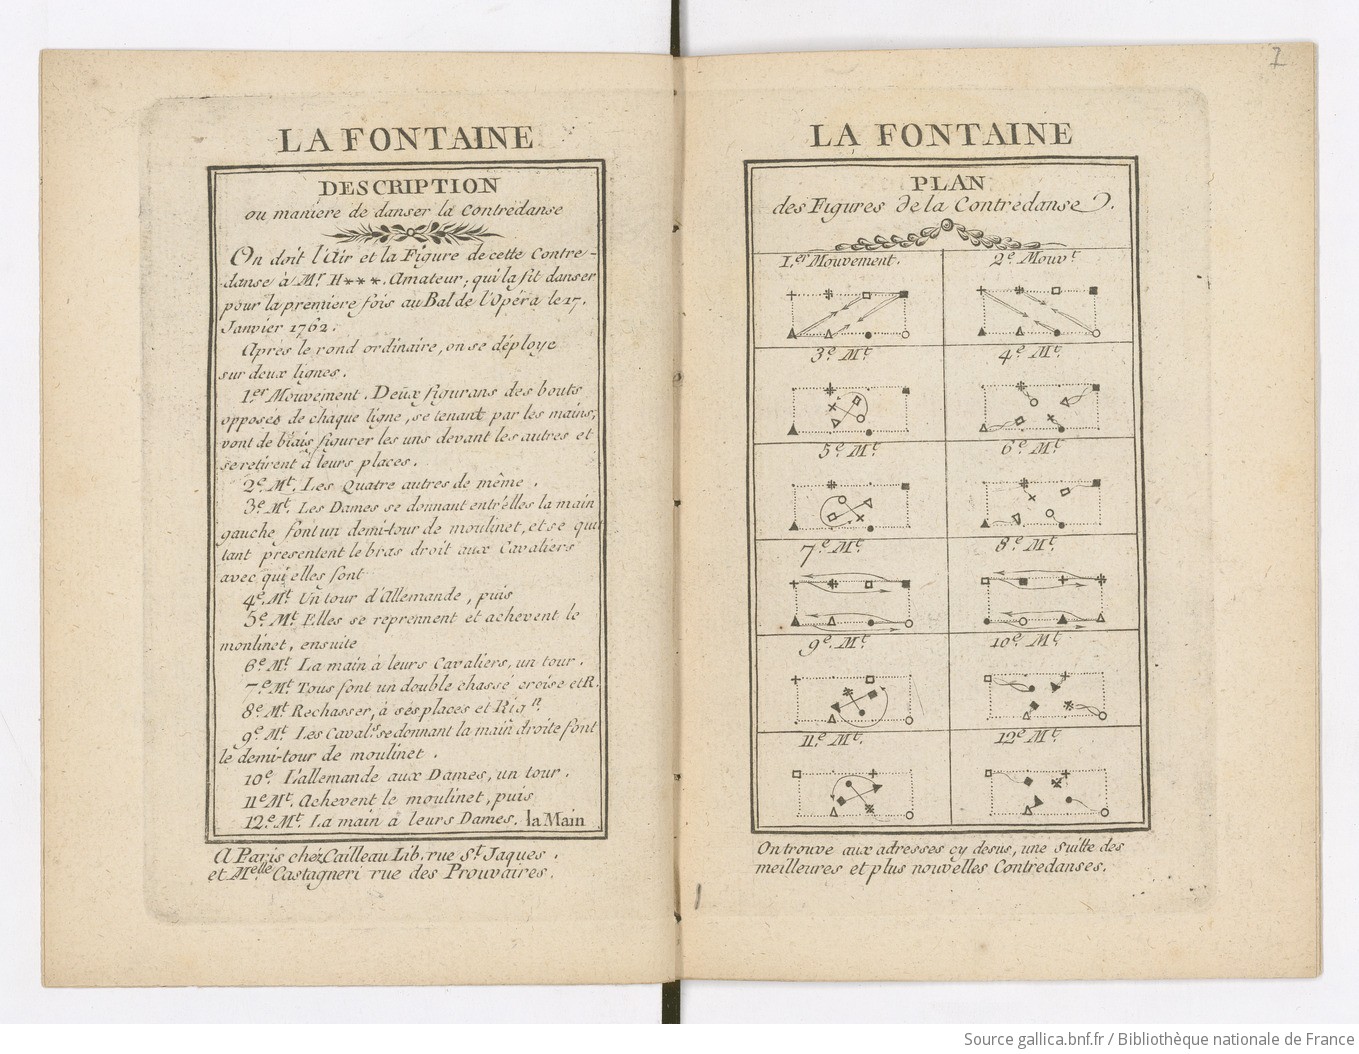 LA FONTAINE
DESCRIPTION
ou maniere de danser la Contredanse
On doit l'Air et la Figure de cette Contre-
danse à Mr. H***. Amateur, qui la fit danser
pour la premiere fois au Bal de l'Opéra le 17.
Janvier 1762.
Après le rond ordinaire, on se déploye
sur deux lignes.
1.er Mouvement. Deux figurans des bouts
opposés de chaque ligne, se tenant par les mains,
vont de biais figurer les uns devant les autres et
se retirent à leurs places.
2.e Mt. Les Quatre autres de même.
3.e Mt. Les Dames se donnant entr'elles la main
gauche font un demi-tour de moulinet, et se quit
tant presentent le bras droit aux Cavaliers
avec qui elles font
4.e Mt. Un tour d'Allemande, puis
5.e Mt. Elles se reprennent et achevent le
moulinet, ensuite
6.e Mt. La main à leurs Cavaliers, un tour.
7.e Mt. Tous font un double chassé croisé et R.
8.e Mt. Rechasser, à ses places et Rig.n
9.e Mt. Les Caval.s se donnant la main droite font
le demi-tour de moulinet.
10.e L'allemande aux Dames, un tour.
11.e Mt. Achevent le moulinet, puis
12.e Mt. La main a leurs Dames. la Main
A Paris chéz Cailleau Lib. rue St. Jaques.
et Melle. Castagneri rue des Prouvaires.
7
LA FONTAINE
PLAN
des Figures de la Contredanse.
1.er Mouvement. 2.e Mouv.t
3.e Mt. 4.e Mt.
5.e Mt. 6.e Mt.
7.e Mt. 8.e Mt.
9.e Mt. 10.e Mt.
11.e Mt. 12.e Mt.
On trouve aux adresses cy desus, une Suitte des
meilleures et plus nouvelles Contredanses.
Source gallica.bnf.fr / Bibliothèque nationale de France